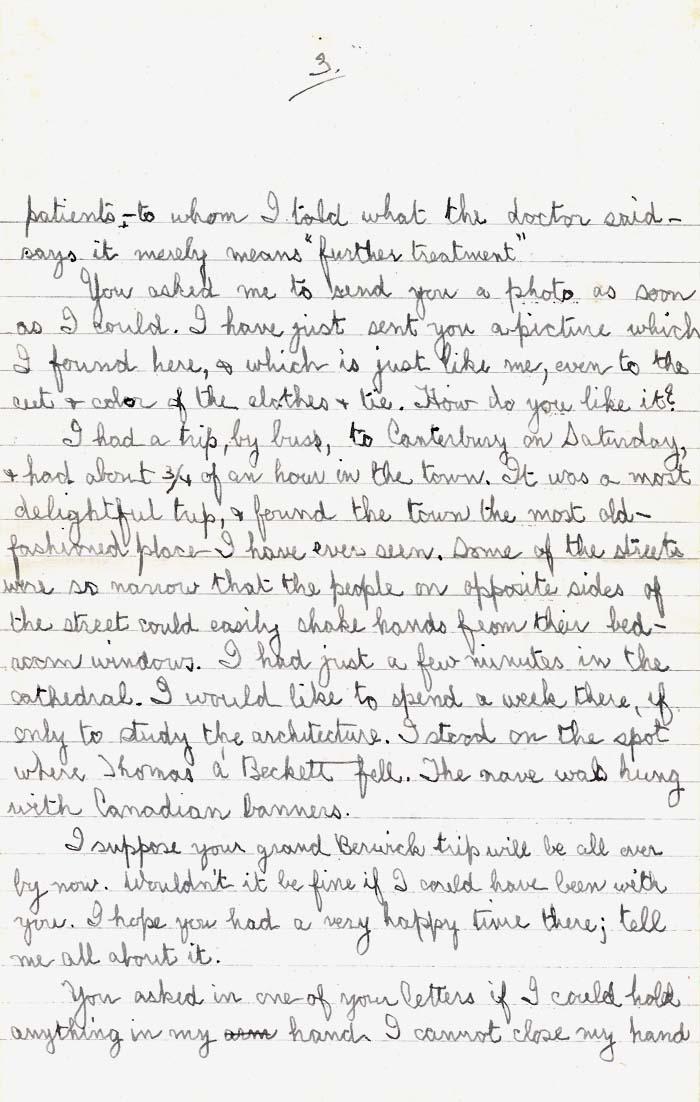 3.
patients – to whom I told what the doctor said –
says it merely means "further treatment"
You asked me to send you a photo as soon
as I could. I have just sent you a picture which
I found here, & which is just like me, even to the
cut & color of the clothes & tie. How do you like it?
I had a trip, by buss, to Canterbury on Saturday,
& had about 3/4 of an hour in the town. It was a most
delightful trip, & found the town the most old-
fashioned place I have ever seen. Some of the streets
were so narrow that the people on opposite sides of
the street could easily shake hands from their bed-
room windows. I had just a few minutes in the
cathedral. I would like to spend a week there, if
only to study the architecture. I stood on the spot
where Thomas a' Beckett fell. The nave was hung
with Canadian banners.
I suppose your grand Berwick trip will be all over
by now. Wouldn't it be fine if I could have been with
you. I hope you had a very happy time there; tell
me all about it.
You asked in one of your letters if I could hold
anything in my arm hand. I cannot close my hand